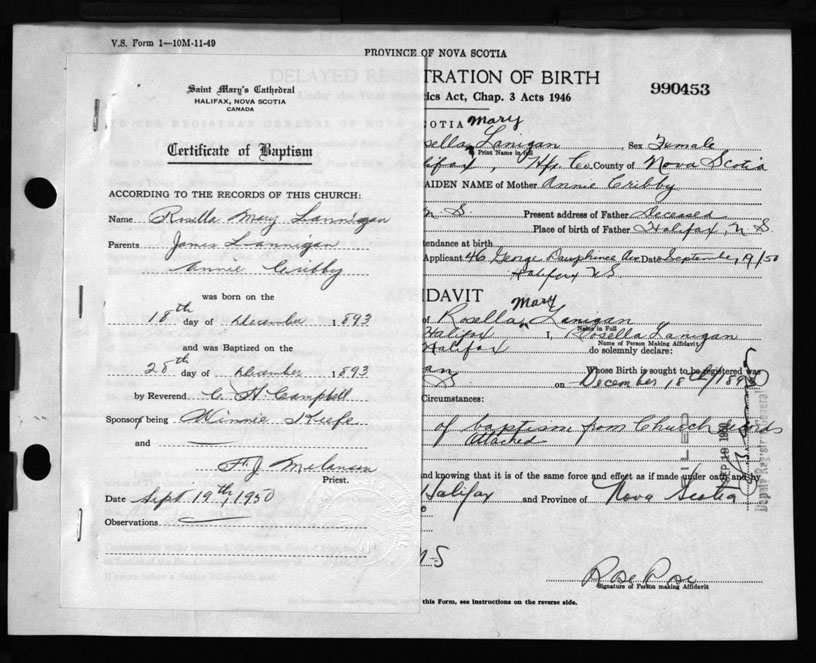 V.S. Form 1—10M-11-49
PROVINCE OF NOVA SCOTIA
Saint Mary's Cathedral
HALIFAX, NOVA SCOTIA
CANADA
Certificate of Baptism
ACCORDING TO THE RECORDS OF THIS CHURCH:
Name Rosella Mary Lannigan
Parents James Lannigan
Annie Cribby
was born on the
18th day of December 1893
and was Baptized on the
28th day of December 1893
by Reverend C. H. Campbell
Sponsors being Winnie Keefe
and
F. J. Melanson
Priest.
Date Sept. 19th, 1950
Observations
DELAYED REGISTRATION OF BIRTH
990453
ics Act, Chap. 3 Acts 1946
OTIA Mary
sella Lanigan Sex Female
Print Name in full
lifax, Hfx Co. County of Nova Scotia
AIDEN NAME of Mother Annie Cribby
N S. Present address of Father Deceased
Place of birth of Father Halifax, N. S.
tendance at birth
Applicant 46 George Dauphinee Ave Date September 19/50
Halifax NS
IDAVIT Mary
of Rosella Lanigan
Name in Full
Halifax I, Rosella Lanigan
Name of Person Making Affidavit
Halifax do solemnly declare:
an Whose Birth is sought to be registered was
S. on December 18th/1893
Circumstances:
of baptism from Church records
attached
FILED
SEP 19 1950
Deputy Registrar General
and knowing that it is of the same force and effect as if made under oath and by
Halifax and Province of Nova Scotia
NS
Rose Rose
Signature of Person making Affidavit
this Form, see instructions on the reverse side.